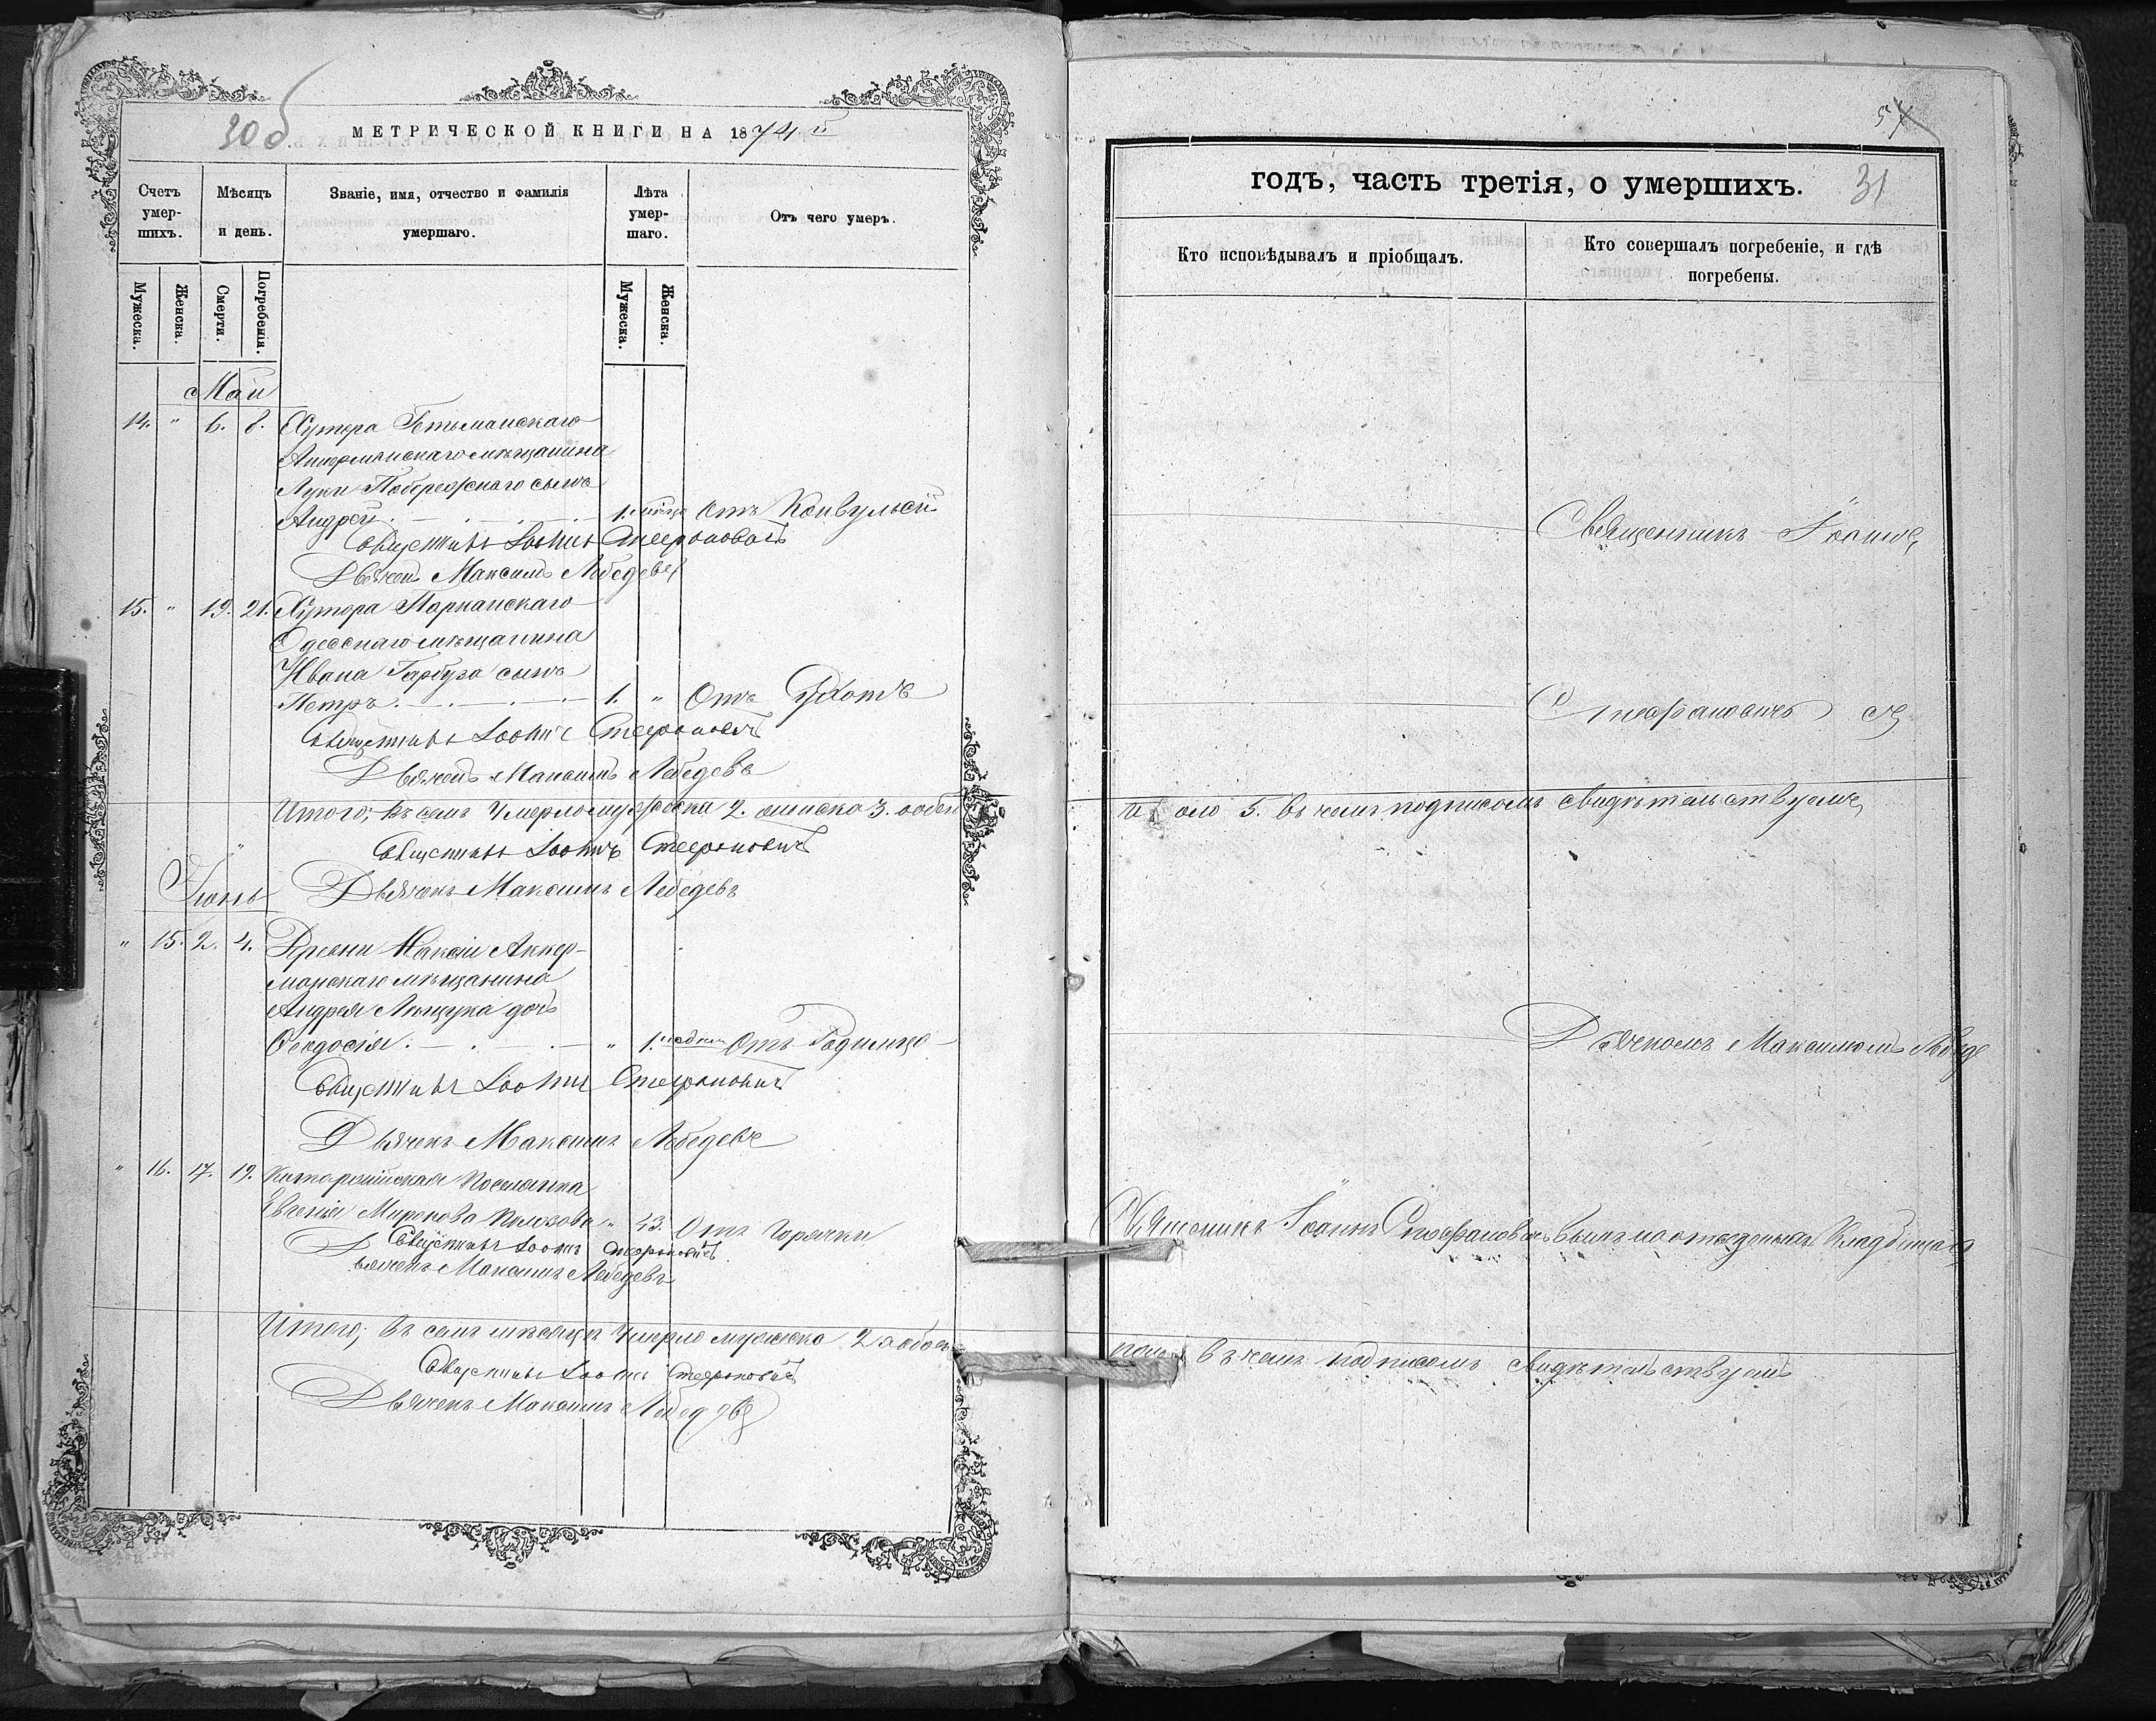 30об
МЕТРИЧЕСКОЙ КНИГИ НА 1874й
Счетъ умер-шихъ.
Мѣсяцъ и день.
Званіе, имя, отчество и фамилія умершаго.
Лѣта умер-шаго.
Отъ чего умеръ.
Мужеска.
Женска.
Смерти.
Погребенія.
Мужеска.
Женска.
Май
14. " 6. 8. Хутора Гетьманскаго
Аккерманскаго мѣщанина
Луки Побережнаго сынъ
Андрей 1. Отъ Конвульсій
Священникъ Іоаннъ Стефановичъ
Дьячекъ Максимъ Лебедевъ
15. " 19. 21. Хутора
Одесскаго мѣщанина
Ивана Гарбуза сынъ
Петръ 1. " Отъ
Священникъ Іоаннъ Стефановичъ
Дьячекъ Максимъ Лебедевъ
Итого; въ семъ Умерло мужеска 2. женска 3. обоего
Священникъ Іоаннъ Стефановичъ
Дьячекъ Максимъ Лебедевъ
Іюнь
" 15. 2. 4. Аккер-
манскаго мѣщанина
Андрея дочь
Феодосія " 1. Отъ Родимца
Священникъ Іоаннъ Стефановичъ
Дьячекъ Максимъ Лебедевъ
" 16. 17. 19. поселянка
Евгенія " 43. Отъ Горячки
Священникъ Іоаннъ Стефановичъ
Дьячекъ Максимъ Лебедевъ
Итого; въ семъ мѣсяцѣ Умерло женска 2 а обоего
Священникъ Іоаннъ Стефановичъ
Дьячекъ Максимъ Лебедевъ
57
годъ, часть третія, о умершихъ. 31
Кто исповѣдывалъ и пріобщалъ.
Кто совершалъ погребеніе, и гдѣ погребены.
Священникъ Іоаннъ
Стефановичъ съ
5. въ чемъ подписомъ свидѣтельствуемъ
Дьячкомъ Максимомъ
Священникъ Іоаннъ Стефановичъ кладбищахъ
въ чемъ подписомъ свидѣтельствуемъ